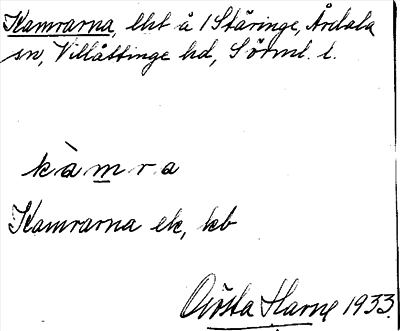 Kamrarna, lkt å 1 Stäringe, Årdala
sn, Villåttinge hd, Sörml. l.
kàmra
Kamrarna ek, kb
Gösta Harne 1933.